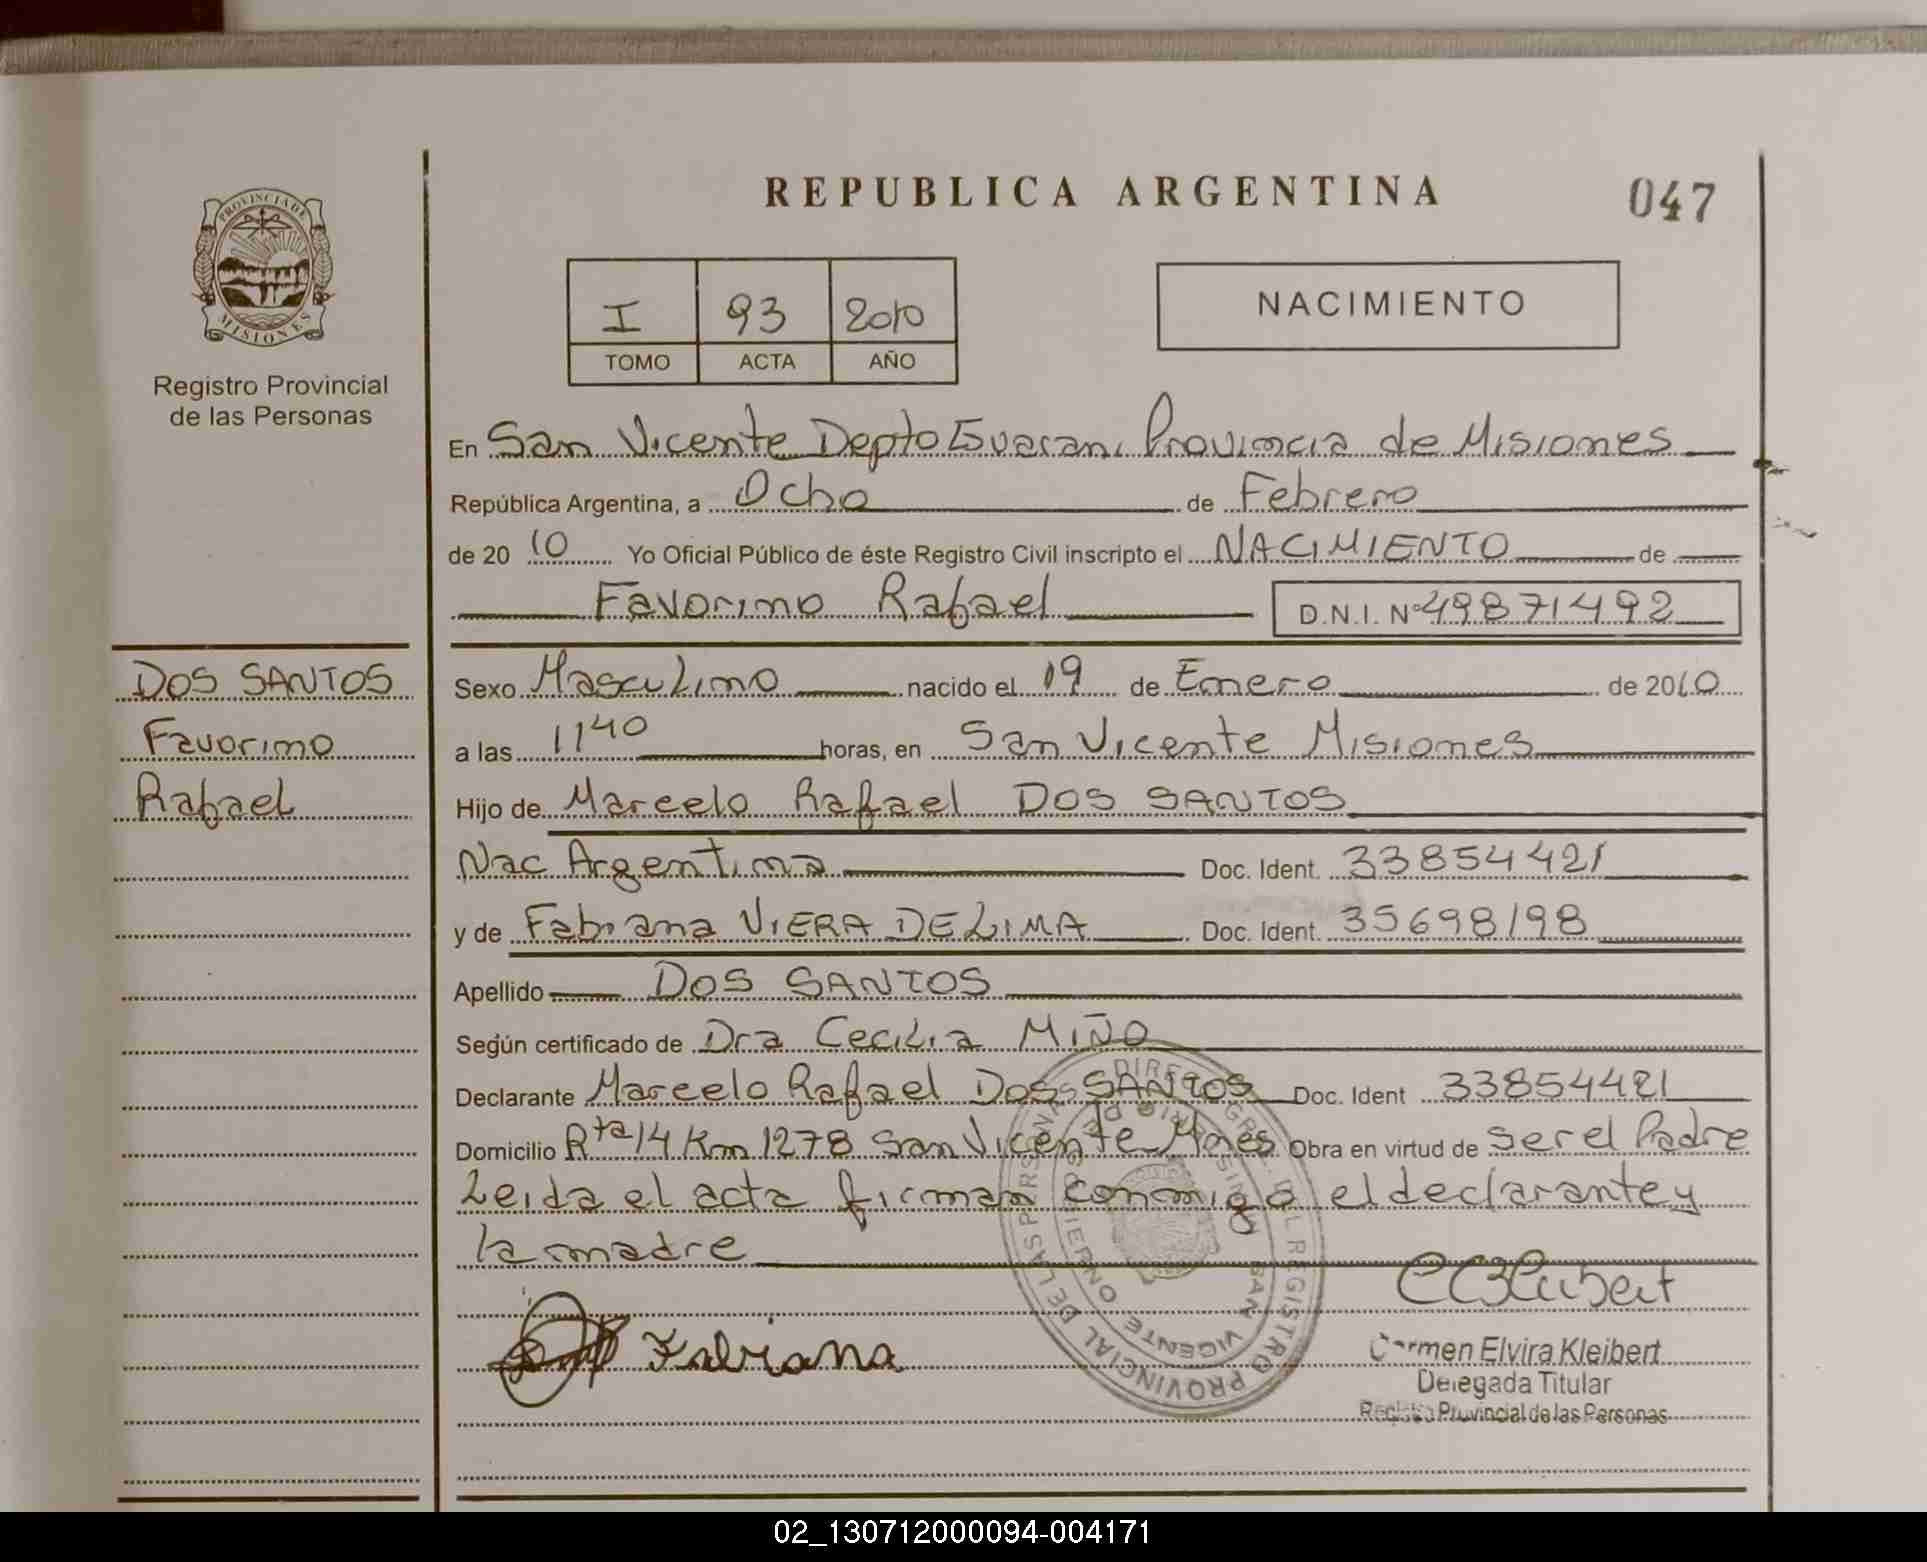 REPUBLICA ARGENTINA
047
PROVINCIA DE
MISIONES
Registro Provincial
de las Personas
I 93 2010
TOMO ACTA AÑO
NACIMIENTO
En San Vicente Depto Guarani Provincia de Misiones
República Argentina, a Ocho de Febrero
de 20 10 Yo Oficial Público de éste Registro Civil inscripto el NACIMIENTO de
Favorino Rafael D.N.I. Nº 49871492
DOS SANTOS
Favorino
Rafael
Sexo Masculino nacido el 19 de Enero de 2010
a las 1140 horas, en San Vicente Misiones
Hijo de Marcelo Rafael DOS SANTOS
Nac Argentina Doc. Ident. 33854421
y de Fabiana VIERA DE LIMA Doc. Ident. 35698198
Apellido DOS SANTOS
Según certificado de Dra Cecilia MIÑO
Declarante Marcelo Rafael DOS SANTOS Doc. Ident 33854421
Domicilio Rta 14 Km 1278 San Vicente Mnes Obra en virtud de ser el Padre
Leida el acta firman conmigo el declarante y
la madre
Fabiana
Carmen Elvira Kleibert
Delegada Titular
Registro Provincial de las Personas
02_130712000094-004171